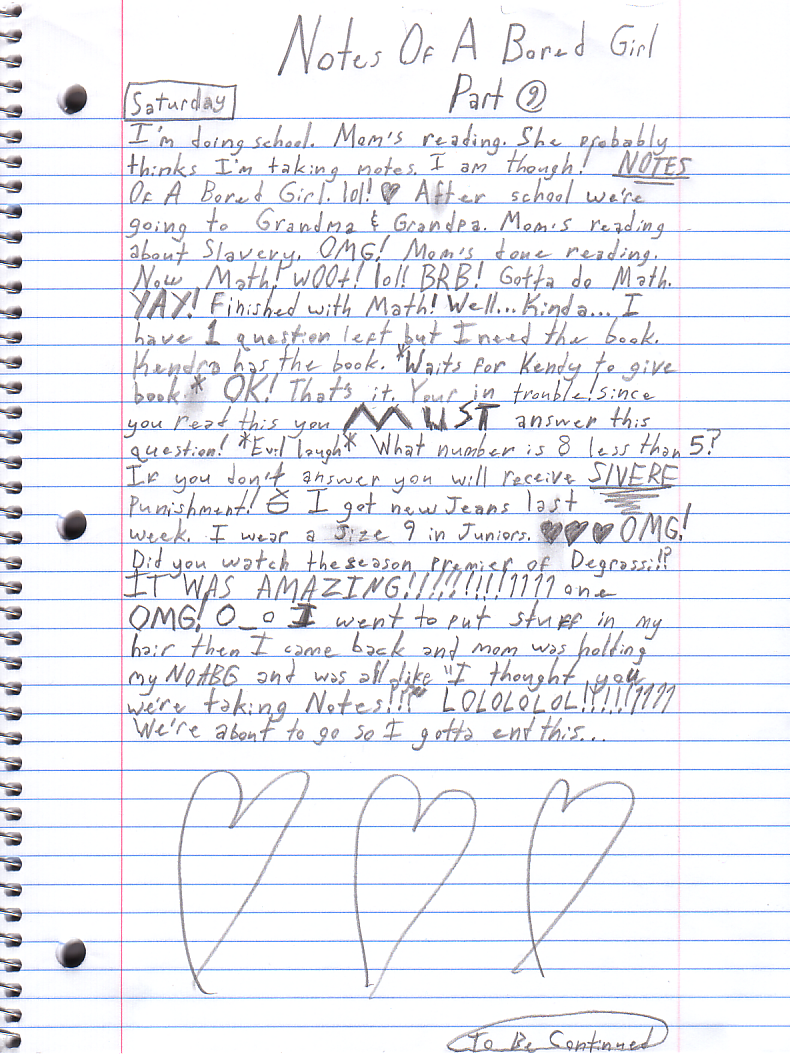 Notes Of A Bored Girl
Part 9
Saturday
I'm doing school. Mom's reading. She probably
thinks I'm taking notes. I am though! NOTES
Of A Bored Girl. lol! ♥ After school we're
going to Grandma & Grandpa. Mom's reading
about Slavery. OMG! Mom's done reading.
Now Math! WOOt! lol! BRB! Gotta do Math.
YAY! Finished with Math! Well... Kinda... I
have 1 question left but I need the book.
Kendra has the book. *Waits for Kendy to give
book.* OK! That's it. Your in trouble! since
you read this you MUST answer this
question! *Evil laugh* What number is 8 less than 5?
If you don't answer you will receive SIVERE
Punishment! I got new Jeans last
week. I wear a size 9 in Juniors. ♥♥♥ OMG!
Did you watch the season premier of Degrassi!?
IT WAS AMAZING!!!!!!!!!1111 one
OMG! O_o I went to put stuff in my
hair then I came back and mom was holding
my NOABG and was all like "I thought you
we're taking Notes!!!" LOLOLOLOL!!!!!1111
We're about to go so I gotta end this...
To Be Continued